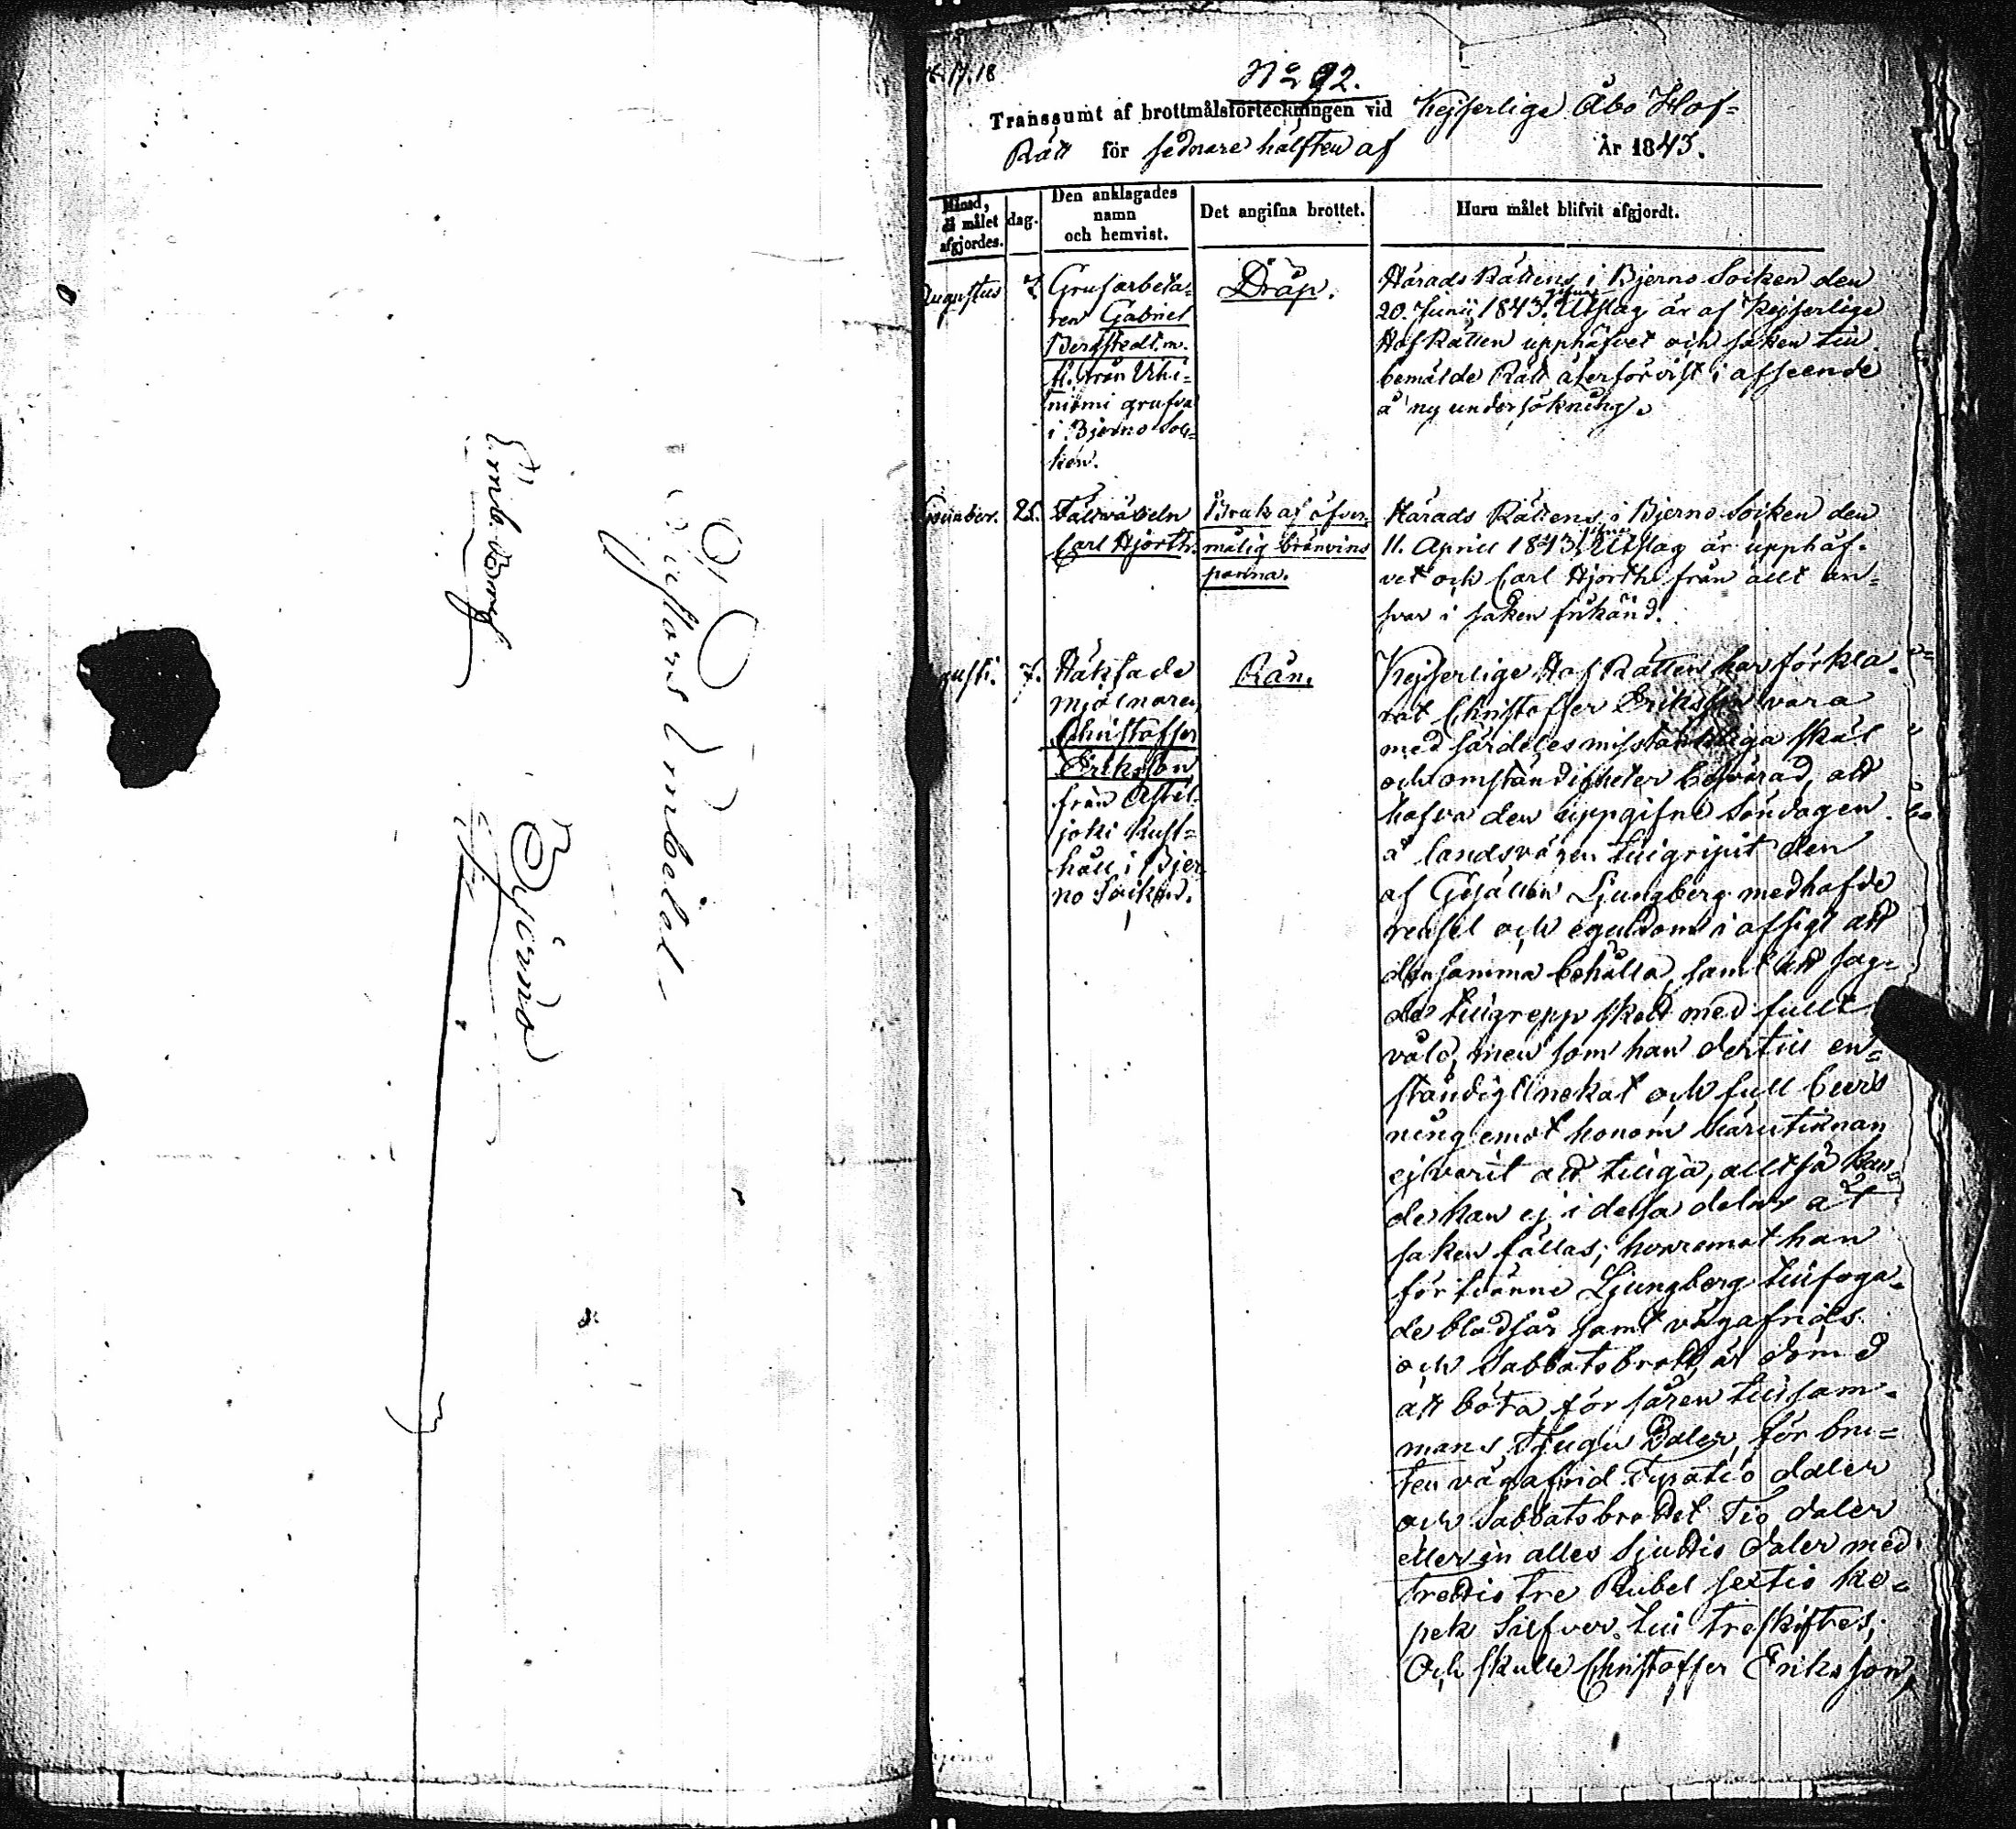 Pastors Embetet
Bjerno
16. 17. 18
No 92.
Transsumt af brottmålsförteckningen vid Kejserlige Åbo Hof-
Rätt för sednare hälften af År 1843.
Månad, då målet afgjordes.
dag.
Den anklagades namn och hemvist.
Det angifna brottet.
Huru målet blifvit afgjordt.
Augustus
7.
Grufarbeta-
ren Gabriel
Bergstedt m.
fl. från Vihi-
niemi grufva
i Bjerno Soc-
ken.
Dråp.
Härads Rättens i Bjerno Socken den
20. Junii 1843 gifne Utslag är af Kejserlige
Hof Rätten upphäfvet och saken till
bemälde Rätt återförvist i afseende
å ny undersökning.
25.
Fältväbeln
Carl Hjorth.
Bruk af öfver-
målig bränvins
panna.
Härads Rättens i Bjerno Socken den
11. April 1843 gifne Utslag är upphäf-
vet och Carl Hjorth från allt an-
svar i saken frikänd.
gusti.
7.
Häktade
mjölnaren
Christoffer
Eriksson
från
joki Rust-
håll i Bjer
no Socken.
Rån.
Kejserlige Hof Rätten har förkla-
rat Christoffer Eriksson vara
med särdeles misstänkliga skäl
och omständigheter besvärad, att
hafva den uppgifne Söndagen
å landsvägen tillgripit den
af Gesällen Ljungberg medhafde
rensel och egendom i afsigt att
densamma behålla, samt att sag-
de tillgrepp skett med fullt
våld, men som han dertill en-
ständigt nekat och full bevis
ning emot honom härutinnan
ej varit att tillgå, alltså kun-
de han ej i dessa delar åt
saken fällas; hvaremot han
för tvänne Ljungberg tillfoga-
de blodsår samt vägafrids
och Sabbatsbrott är dömd
att böta för såren tillsam-
mans Tjugu Daler, för bru-
ten vägafrid Fyratio daler
och Sabbatsbrottet Tio daler
eller in alles Sjuttio daler med
trettio tre Rubel sextio ko-
pek Silfver till treskiftes;
Och skulle Christoffer Eriksson,